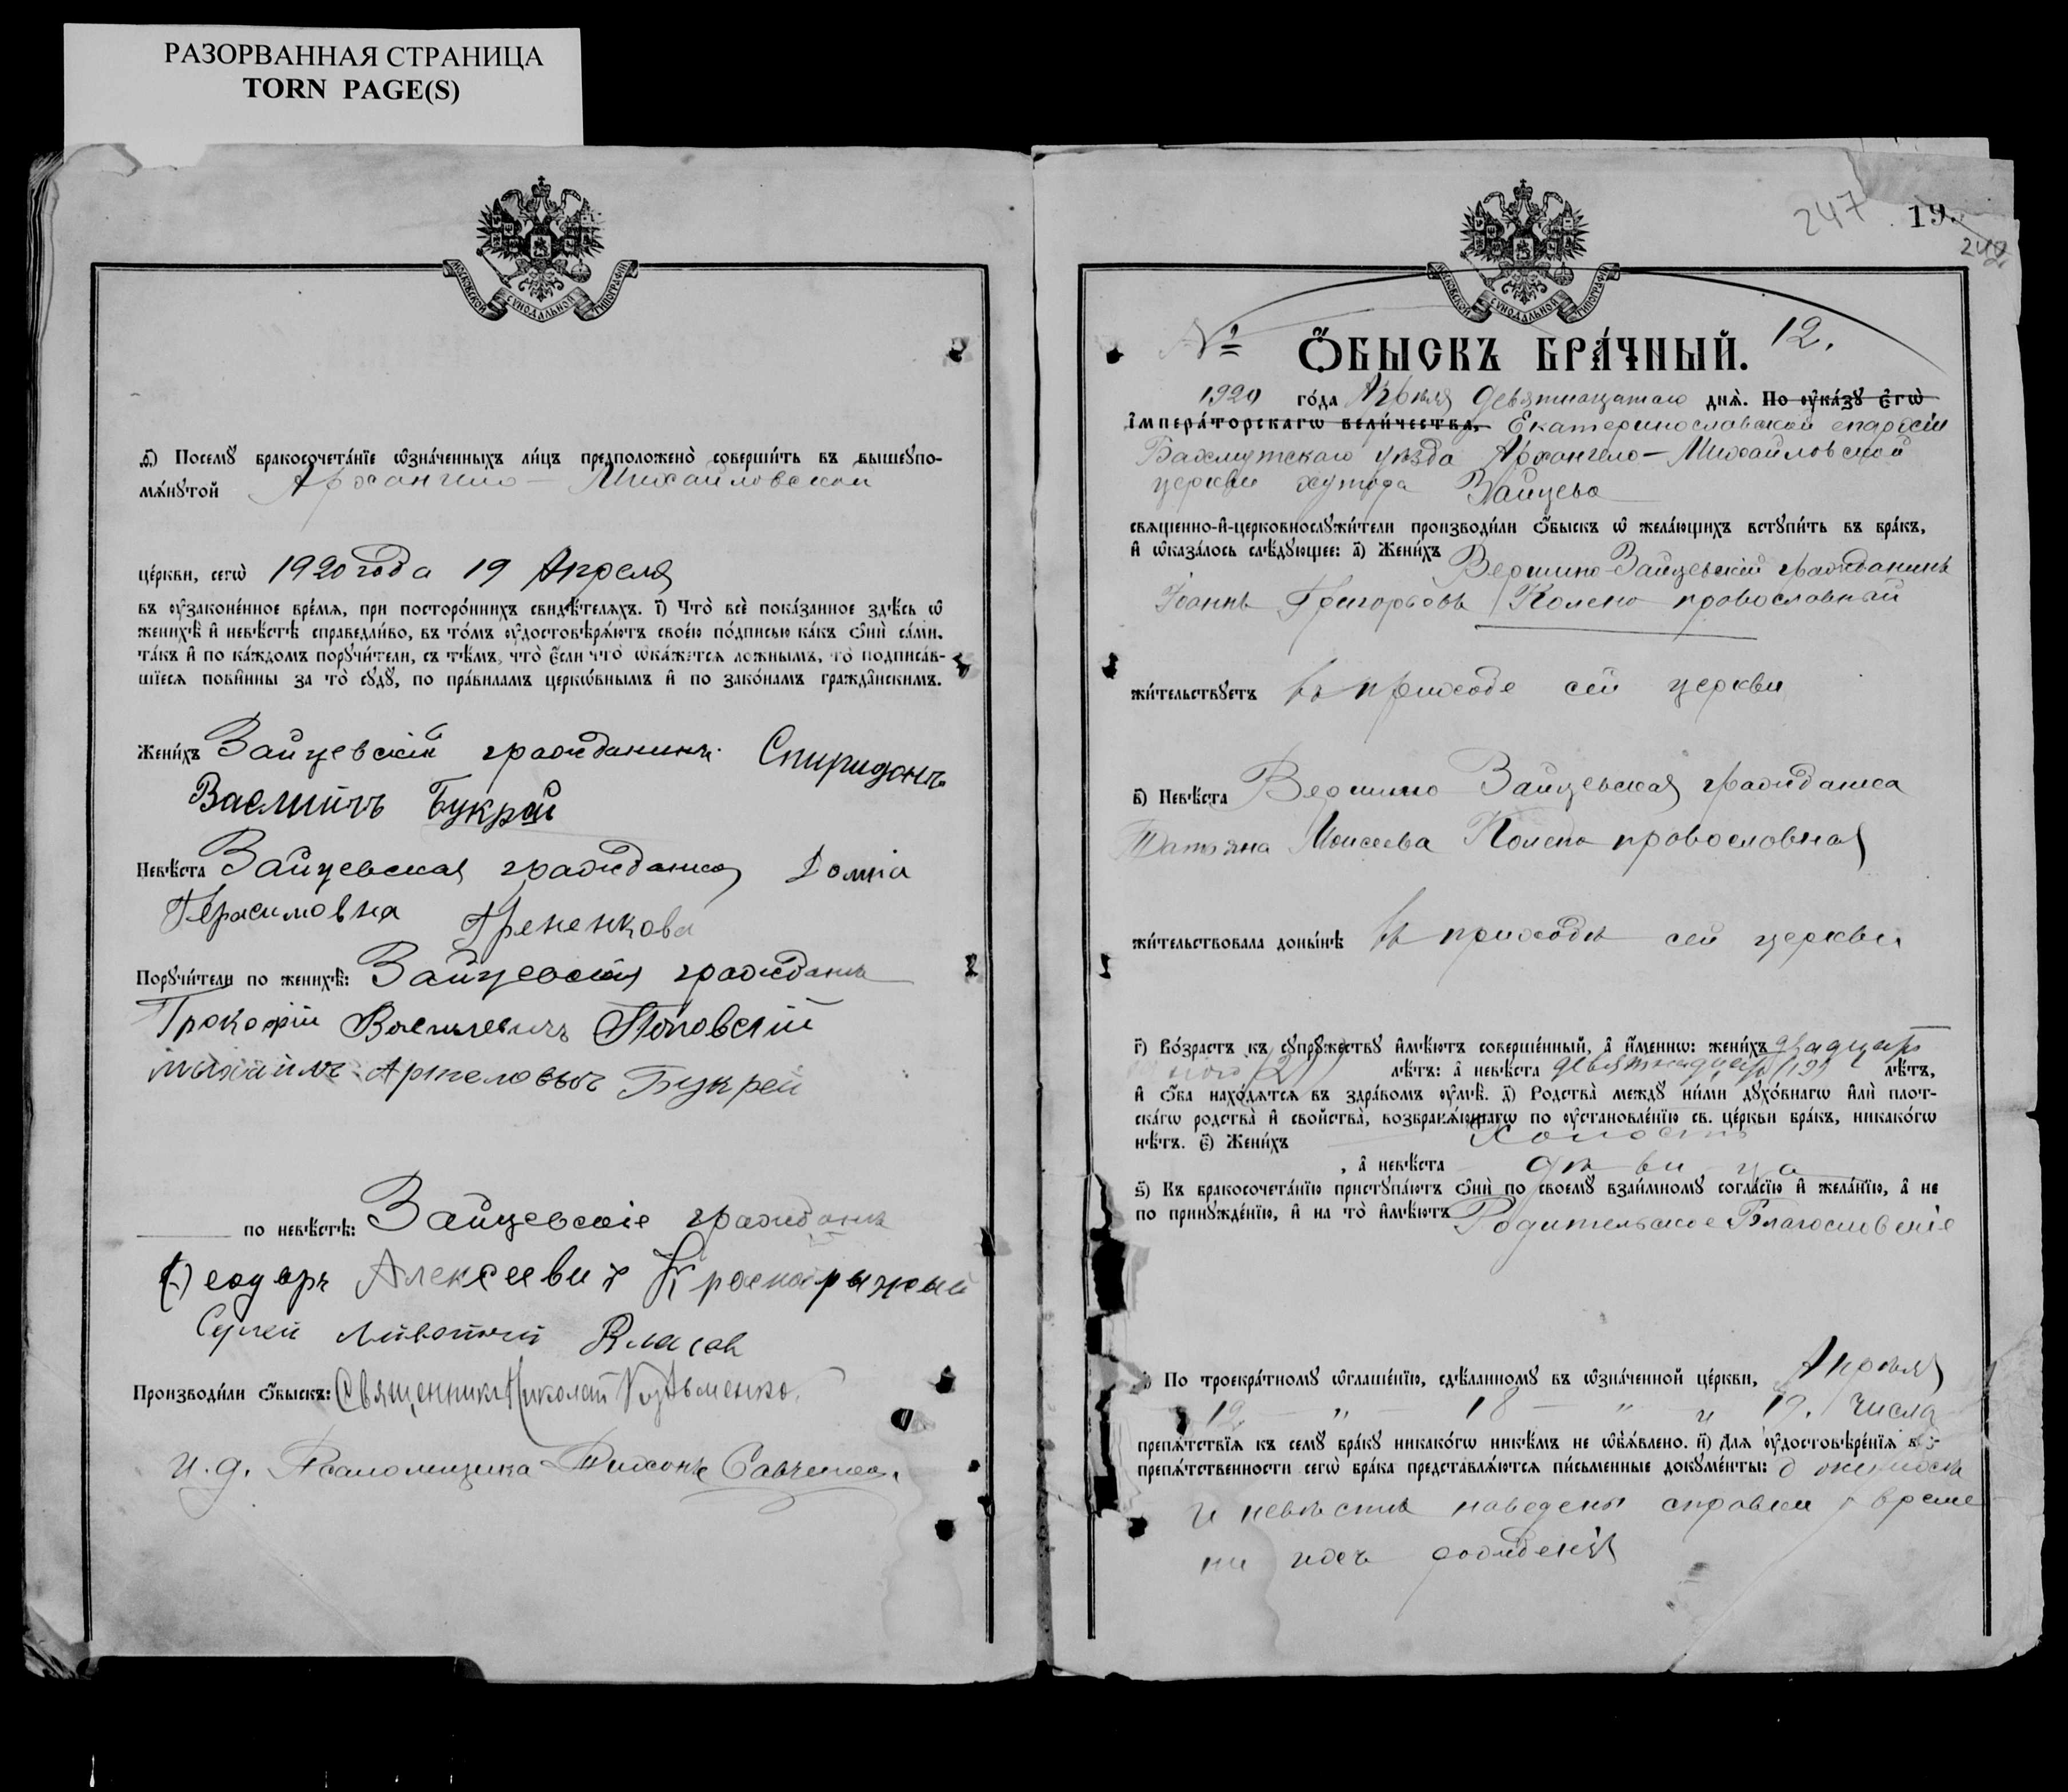 РАЗОРВАННАЯ СТРАНИЦА
TORN PAGE(S)
МОСКОВСКОЙ СѴНОДАЛЬНОЙ ТИПОГРАФІИ
ѳ) Посемꙋ бракосочета́нїе ѡ҆зна́ченныхъ ли́цъ предположено̀ соверши́ть въ вышеꙋпо-
мѧ́нꙋтой Архангело-Михайловской
це́ркви, сегѡ̀ 1920 года 19 Апреля
въ ᲂу҆законе́нное вре́мѧ, при посторо́ннихъ свидѣ́телѧхъ. і҃) Что̀ всѐ пока́занное здѣ́сь ѡ҆
женихѣ̀ и҆ невѣ́стѣ справедли́во, въ то́мъ ᲂу҆достовѣрѧ́ютъ свое́ю по́дписью ка́къ ѻ҆нѝ са́ми.
та́къ и҆ по ка́ждомъ порꙋчи́тели, съ тѣ́мъ, что̀ є҆́сли что̀ ѡ҆ка́жетсѧ ло́жнымъ, то̀ подписа́в-
шїесѧ пови́нны за то̀ сꙋдꙋ̀, по пра́виламъ церко́внымъ и҆ по зако́намъ гражда́нскимъ.
Жени́хъ Зайцевскій гражданинъ Спиридонъ
Васлиичъ Букрѣй
Невѣ́ста Зайцевская гражданка Домна
Герасимовна Грененкова
Порꙋчи́тели по женихѣ̀: Зайцевскія граждане
Прокофій Васильевичъ Поповскій
Михаилъ Артемовичъ Букрей
по невѣ́стѣ: Зайцевскіе граждане
Ѳеодоръ Алексеевич
Власов
Производи́ли ѻ҆́быскъ: Священникъ Николай Кузьменко.
И. д. Псаломщика Тихонъ Савченко.
247
19
242
МОСКОВСКОЙ СѴНОДАЛЬНОЙ ТИПОГРАФІИ
№ Ѻ҆́БЫСКЪ БРА́ЧНЫЙ. 12.
1920 го́да Апрѣля девятнацатаго днѧ̀. По ᲂу҆ка́зꙋ є҆гѡ̀
і҆мпера́торскагѡ вели́чества, Екатеринославской епархіи
Бахмутскаго уѣзда Архангело-Михайловской
церкви хутора Зайцева
свѧще́нно-и҆-церковнослꙋжи́тели производи́ли ѻ҆́быскъ ѡ҆ жела́ющихъ встꙋпи́ть въ бра́къ,
и҆ ѡ҆каза́лось слѣ́дꙋющее: а҃) Жени́хъ Вершино-Зайцевскій гражданинъ
Іоаннъ Григорьевъ Колено православный
жи́тельствꙋетъ въ приходе сей церкви
в҃) Невѣ́ста Вершино Зайцевская гражданка
Татьяна Моисеева Колено православная
жи́тельствовала доны́нѣ въ приходѣ сей церкви
г҃) Во́зрастъ къ сꙋпрꙋ́жествꙋ и҆мѣ́ютъ соверше́нный, а҆ и҆́меннѡ: жени́хъ двадцать
(21) лѣ́тъ: а҆ невѣ́ста девятнадцать (19) лѣ́тъ,
и҆ ѻ҆́ба нахо́дѧтсѧ въ здра́вомъ ᲂу҆мѣ̀. д҃) Родства̀ междꙋ ни́ми дꙋхо́внагѡ и҆лѝ плот-
ска́гѡ родства̀ и҆ сво́йства, возбранѧ́ющагѡ по ᲂу҆становле́нїю св. це́ркви бра́къ, никако́гѡ
нѣ́тъ. є҃) Жени́хъ холостъ
, а҆ невѣ́ста дѣвица
ѕ҃) Къ бракосочета́нїю пристꙋпа́ютъ ѻ҆нѝ по своемꙋ̀ взаи́мномꙋ согла́сїю и҆ жела́нїю, а҆ не
по принꙋжде́нїю, и҆ на то̀ и҆мѣ́ютъ Родительское Благословеніе
По троекра́тномꙋ ѡ҆глаше́нїю, сдѣ́ланномꙋ въ ѡ҆зна́ченной це́ркви, Апрѣля
12 — " — 18 — " — и 19. числа
препѧ́тствїѧ къ семꙋ̀ бра́кꙋ никако́гѡ никѣ́мъ не ѡ҆б̾ѧ́влено. и҃) Длѧ ᲂу҆достовѣре́нїѧ
препѧ́тственности сегѡ̀ бра́ка представлѧ́ютсѧ пи́сьменные докꙋме́нты: о женихѣ
и невѣстѣ наведены справки о време
ни ихъ рожденія